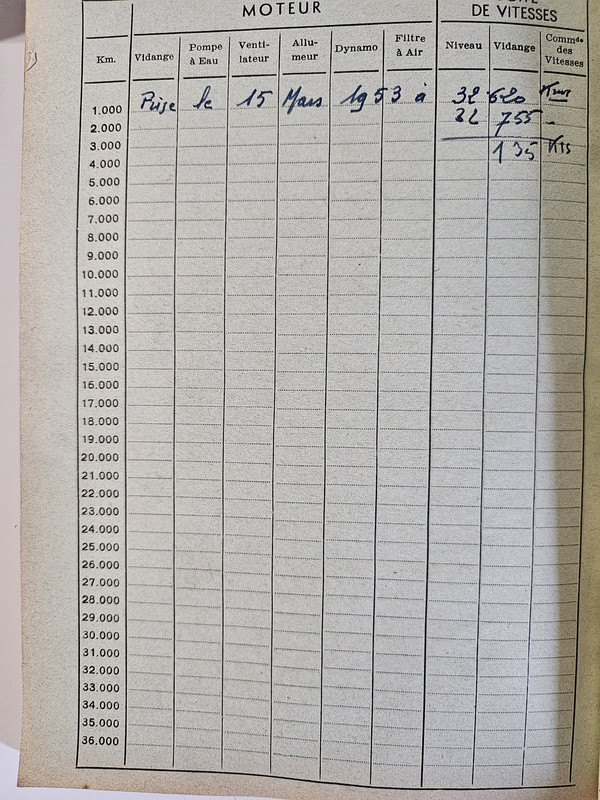 MOTEUR
DE VITESSES
Km. Vidange Pompe à Eau Venti-lateur Allu-meur Dynamo Filtre à Air Niveau Vidange Commde des Vitesses
1.000 Prise le 15 Mars 1953 à 32 620 Kms
2.000 32 755 -
3.000 135 Kms
4.000
5.000
6.000
7.000
8.000
9.000
10.000
11.000
12.000
13.000
14.000
15.000
16.000
17.000
18.000
19.000
20.000
21.000
22.000
23.000
24.000
25.000
26.000
27.000
28.000
29.000
30.000
31.000
32.000
33.000
34.000
35.000
36.000